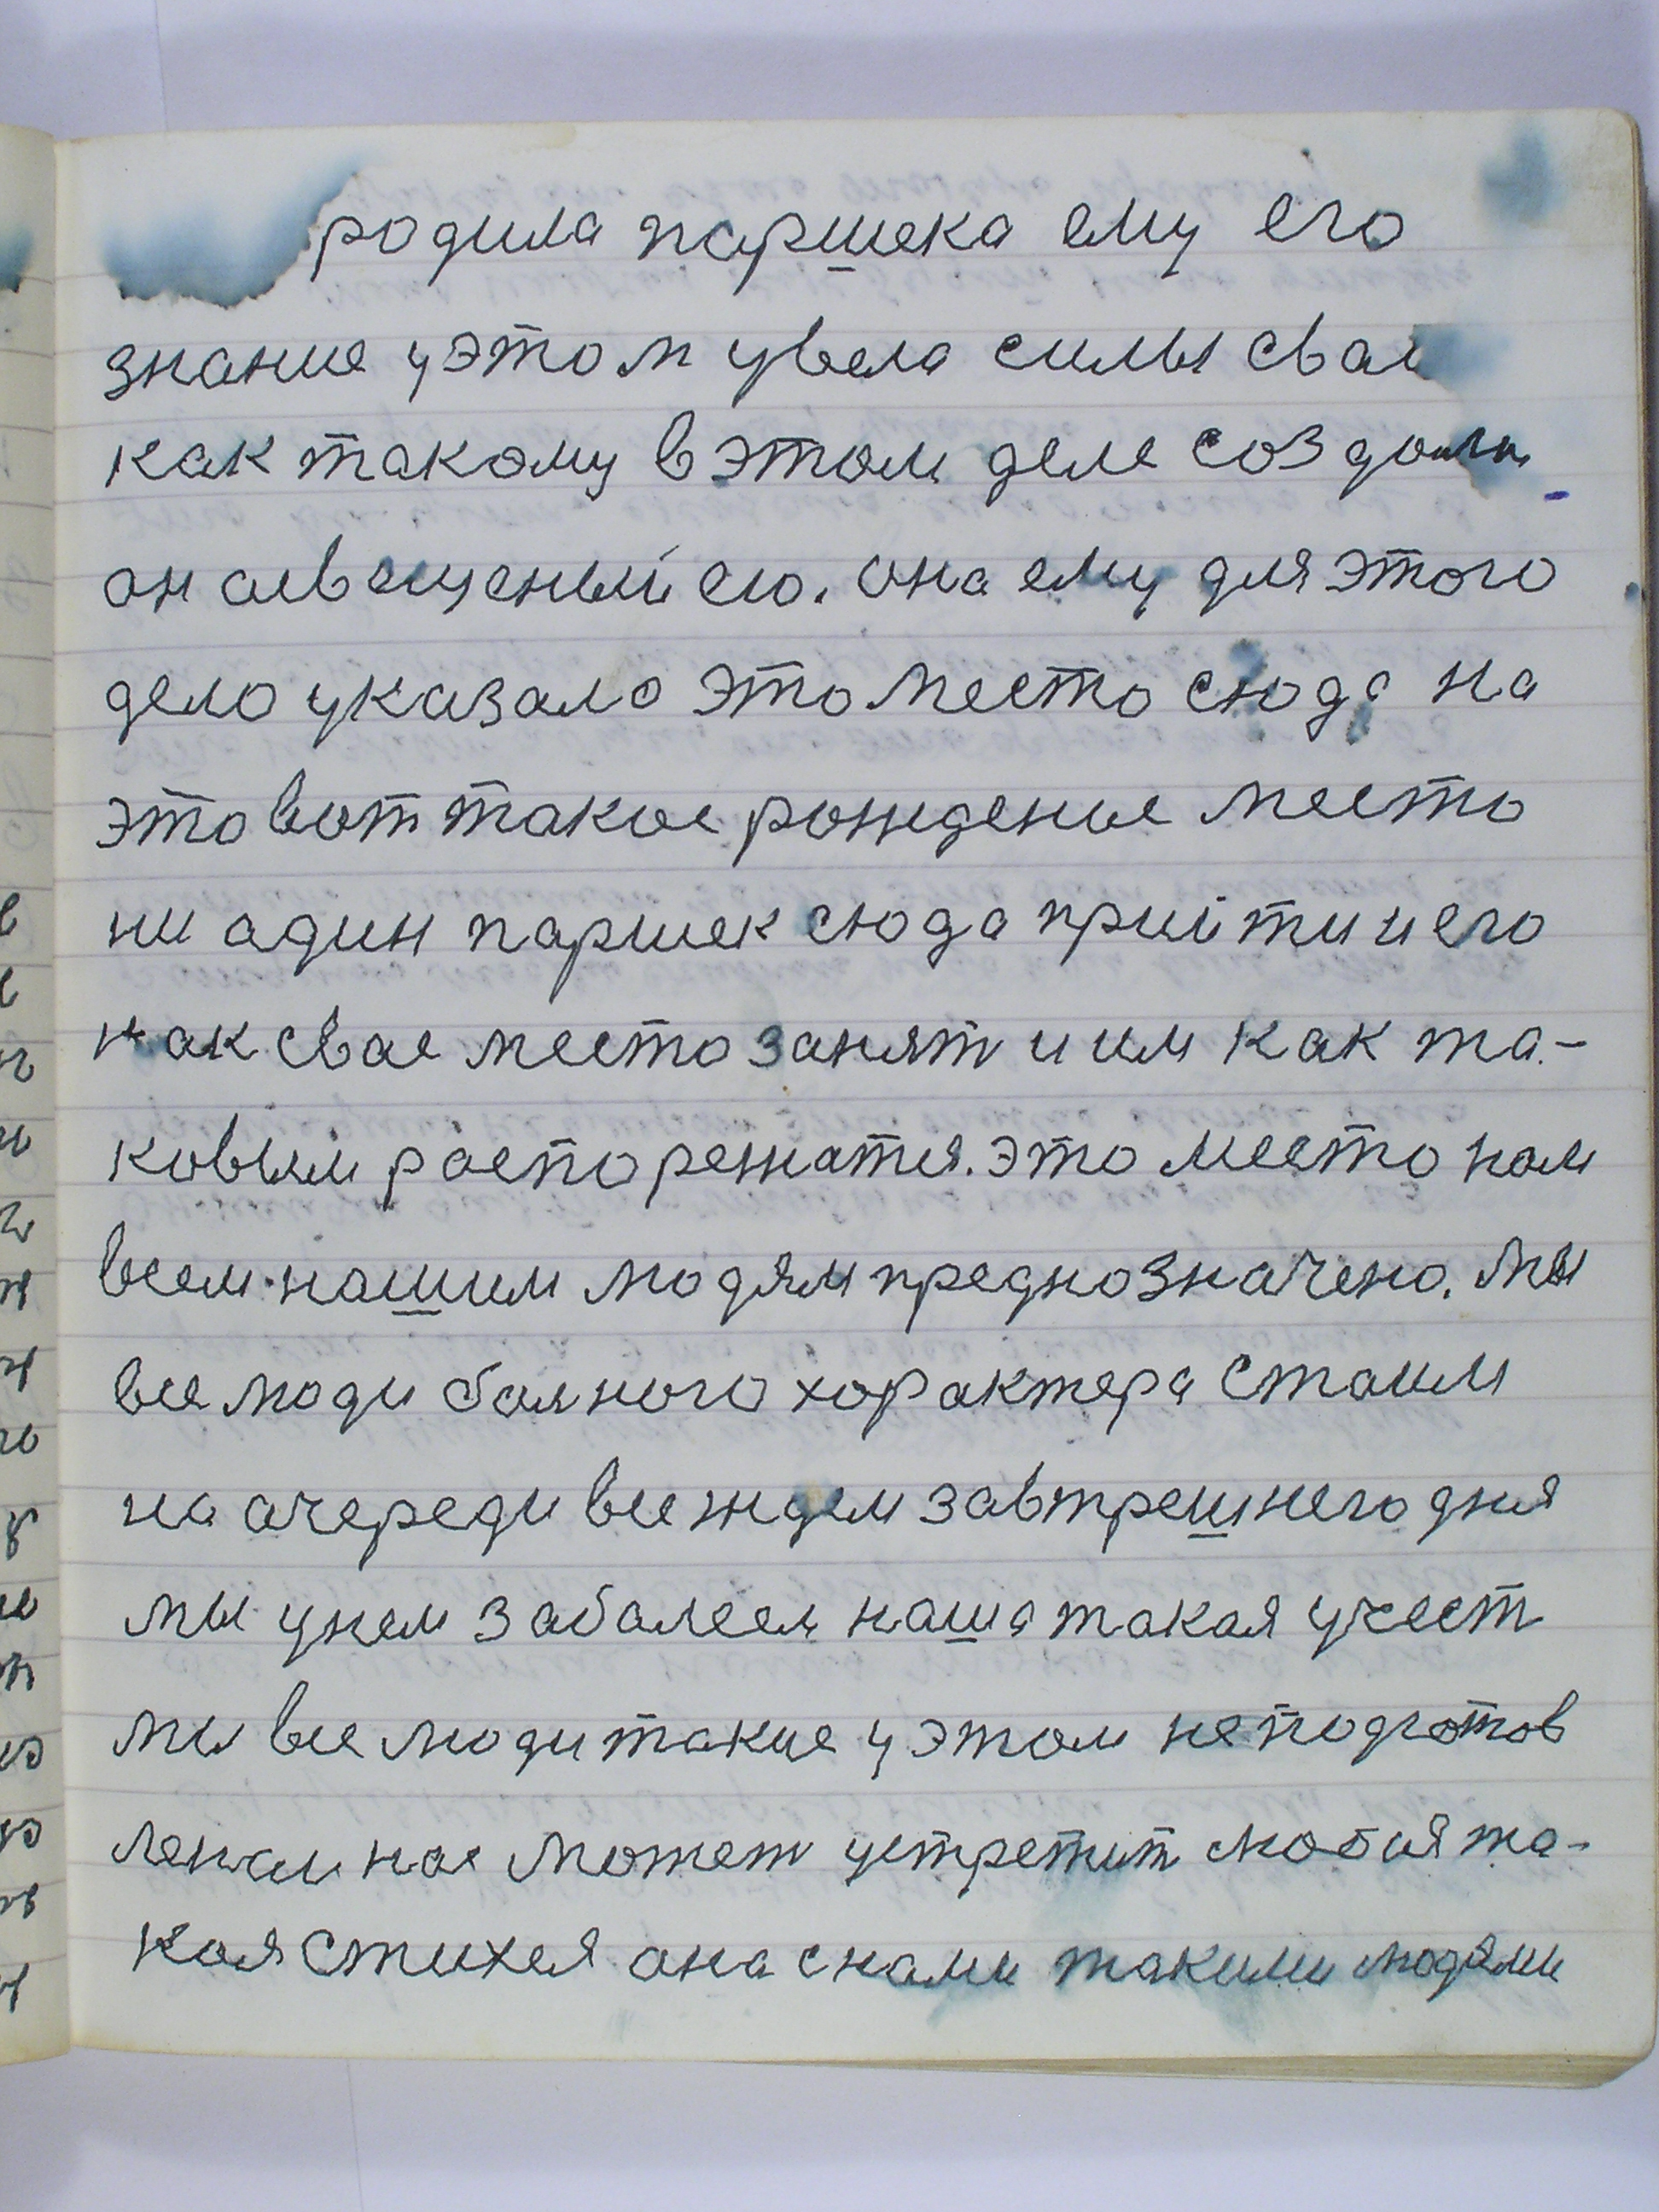 родила паршека ему его
знание у этом увела силы сваи
как такому в этом деле создали
он асвещеный ею. она ему для этого
дело указала это место сюда на
это вот такое рождение место
ни адин паршек сюда прийти и его
как свае место занят и им как та-
ковым распорежатся. это место нам
всем нашим людям преднозначено. мы
все люди балного характера стаим
на очереди все ждем завтрешнего дня
мы унем забалеем наша такая учест
мы все люди такие у этом не подготов
лены нас может устретит любая та-
кая стихея ана снами такими людями